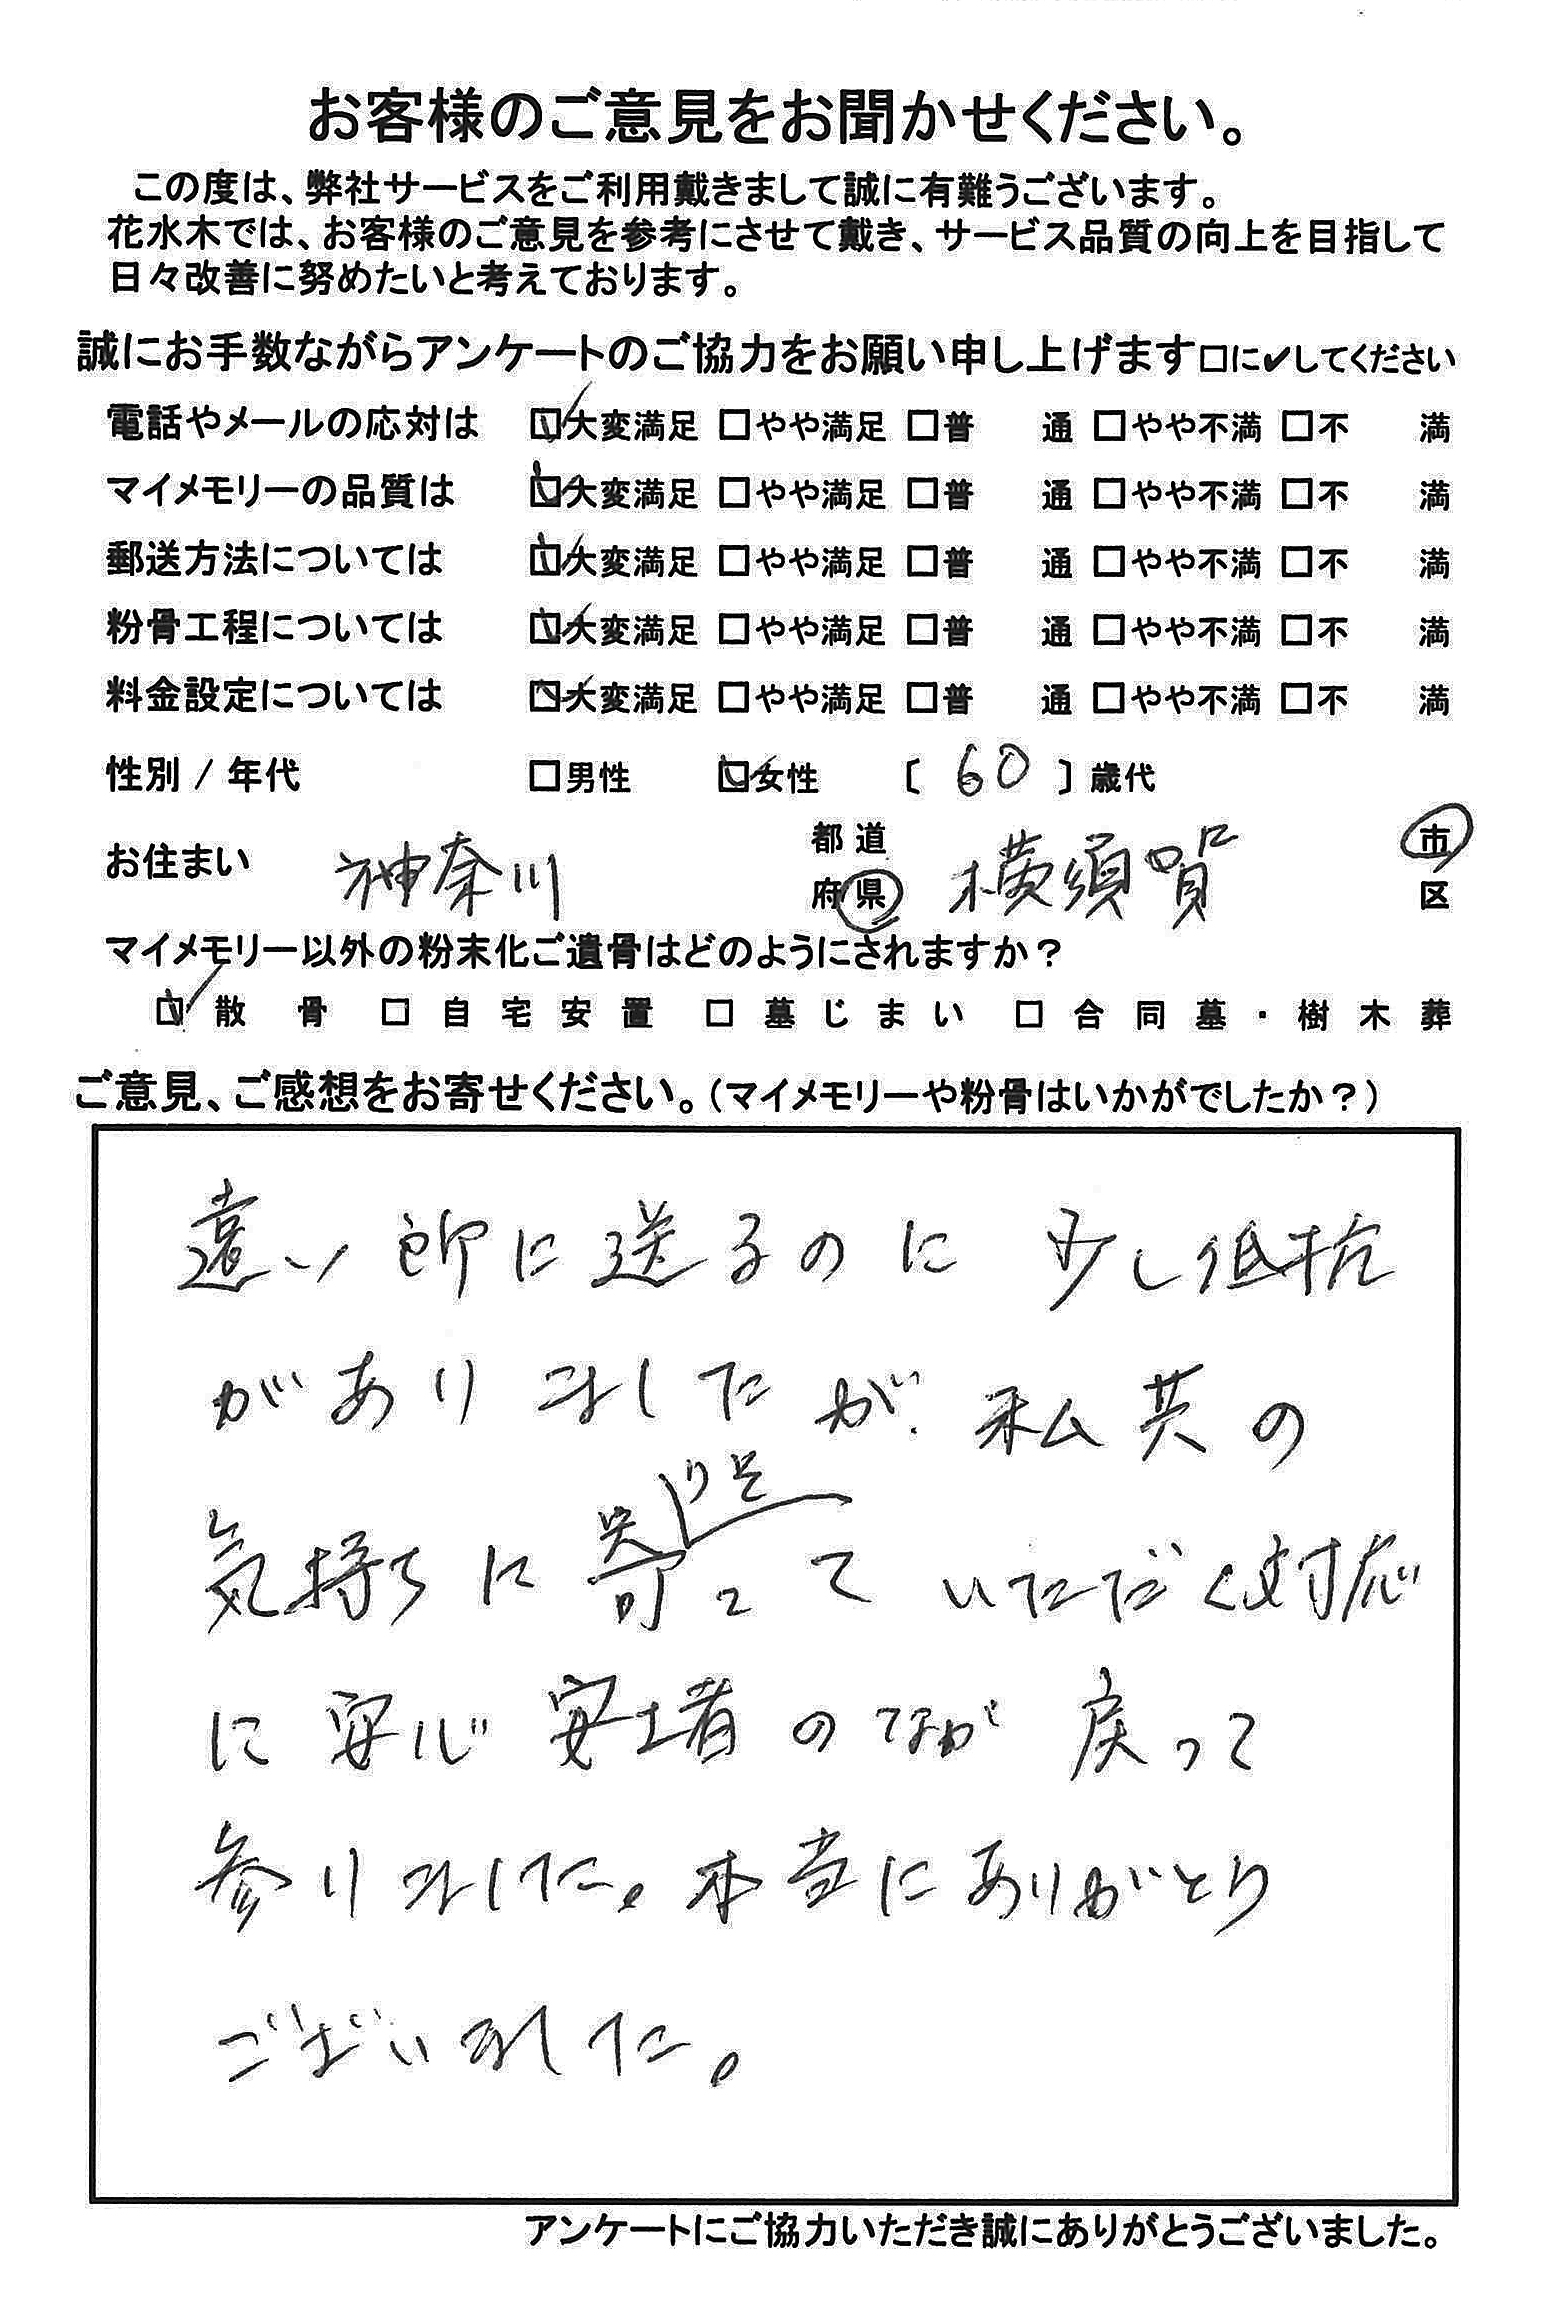 お客様のご意見をお聞かせください。
この度は、弊社サービスをご利用戴きまして誠に有難うございます。
花水木では、お客様のご意見を参考にさせて戴き、サービス品質の向上を目指して
日々改善に努めたいと考えております。
誠にお手数ながらアンケートのご協力をお願い申し上げます□に✔してください
電話やメールの応対は ☑大変満足 □やや満足 □普 通 □やや不満 □不 満
マイメモリーの品質は ☑大変満足 □やや満足 □普 通 □やや不満 □不 満
郵送方法については ☑大変満足 □やや満足 □普 通 □やや不満 □不 満
粉骨工程については ☑大変満足 □やや満足 □普 通 □やや不満 □不 満
料金設定については ☑大変満足 □やや満足 □普 通 □やや不満 □不 満
性別 / 年代 □男性 ☑女性 〔 60 〕歳代
お住まい 神奈川 都道府県 横須賀 市区
マイメモリー以外の粉末化ご遺骨はどのようにされますか？
☑ 散骨 □ 自宅安置 □ 墓じまい □ 合同墓・樹木葬
ご意見、ご感想をお寄せください。（マイメモリーや粉骨はいかがでしたか？）
遠い所に送るのに 少し低抗
がありましたが、私共の
気持ちに寄り そって いただく対応
に安心 安堵の なか 戻って
参りました。本当にありがとう
ございました。
アンケートにご協力いただき誠にありがとうございました。